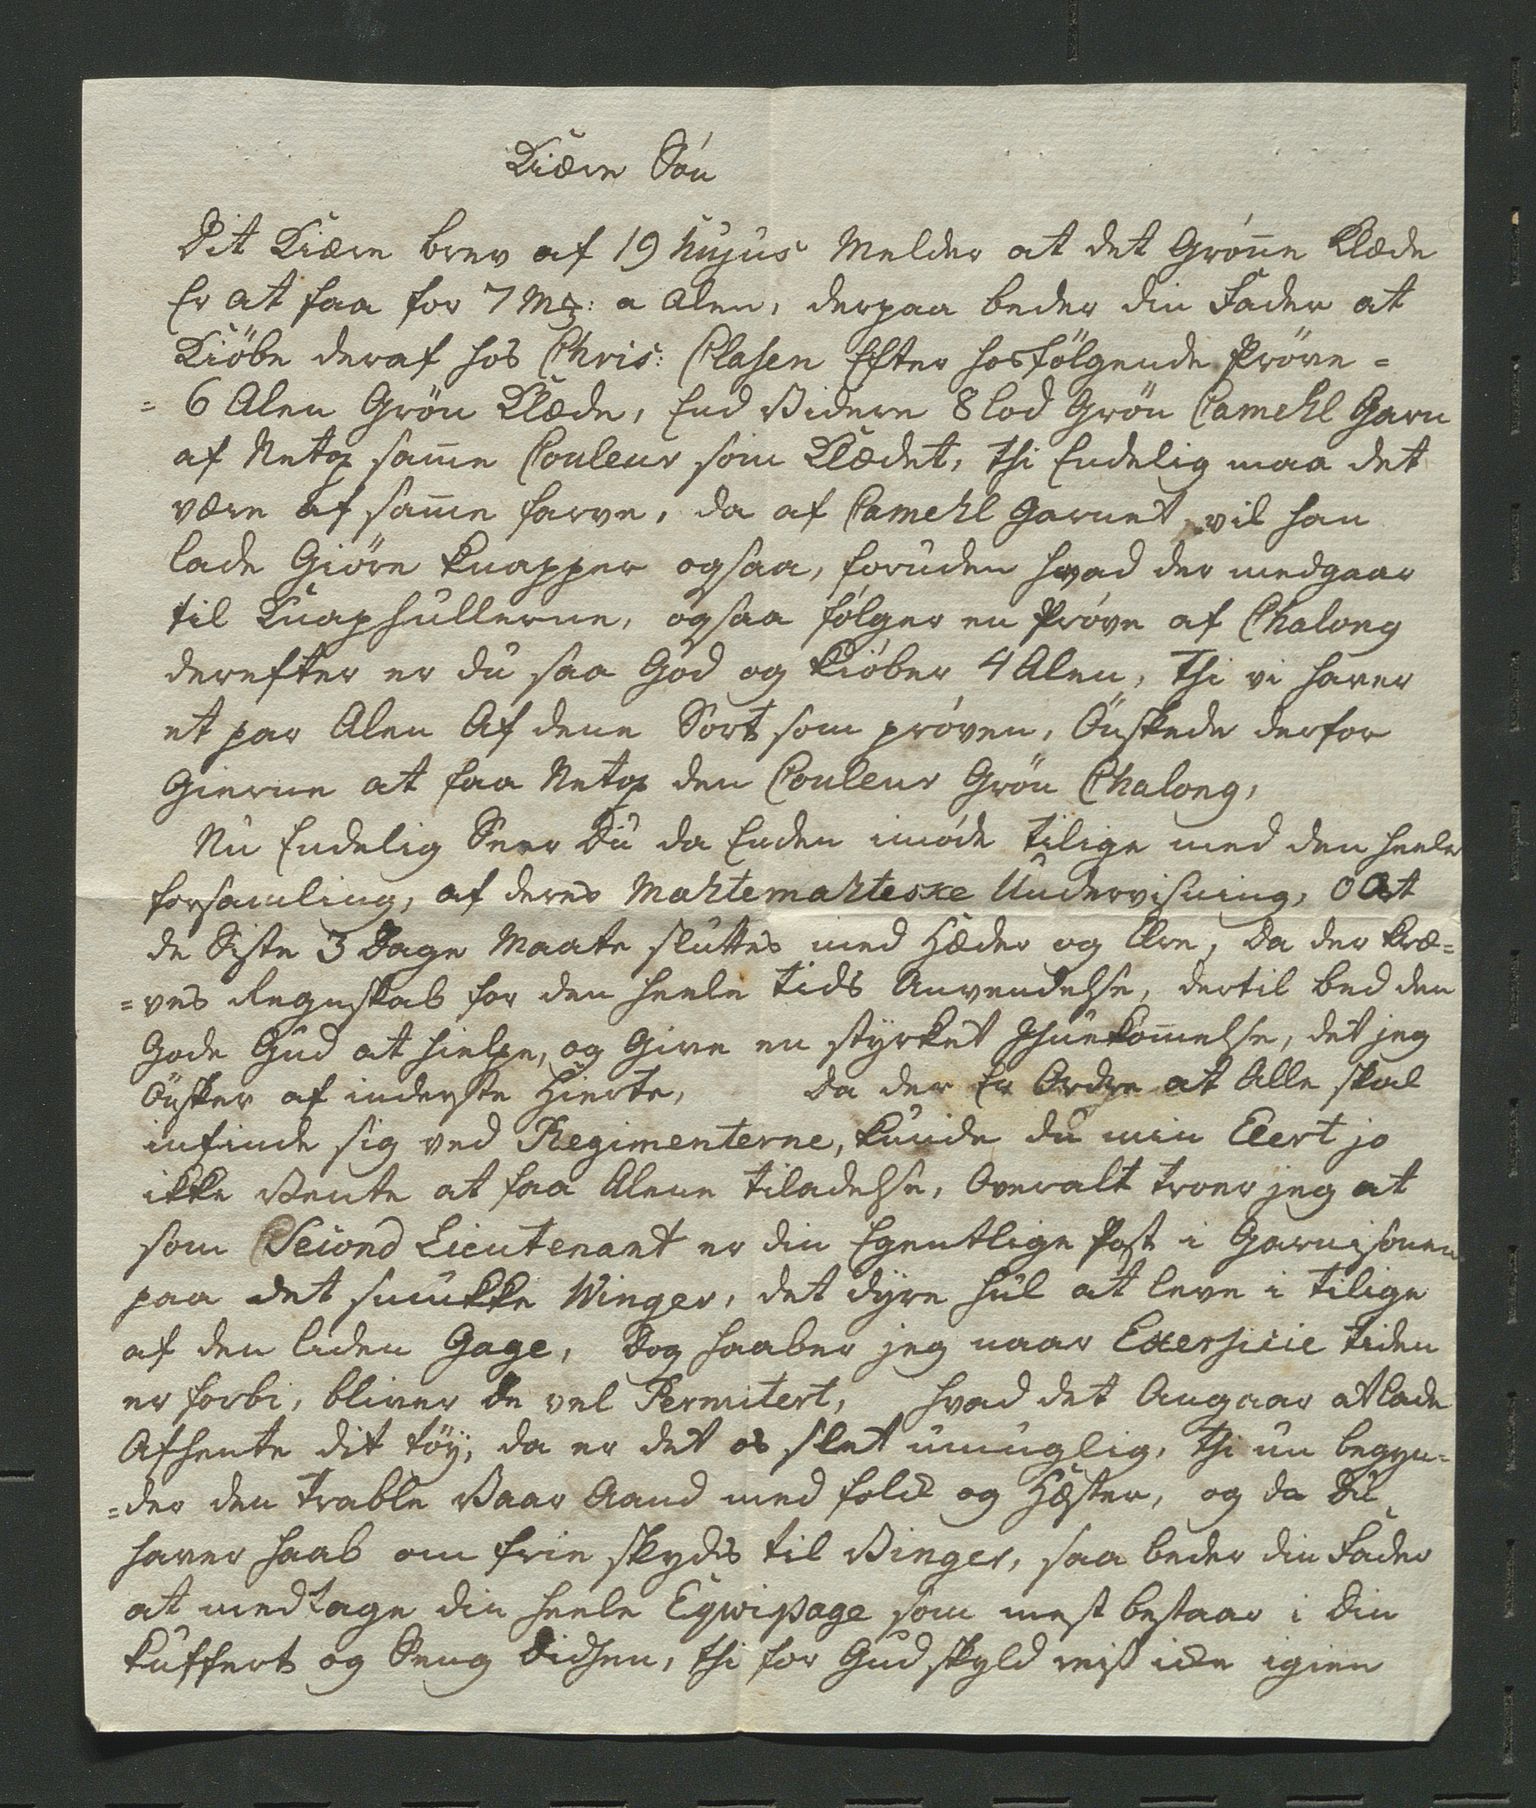 Kiære Søn
Dit Kiære brev af 19 hujus Melder at det Grøn̄e Klæde
Er at faa for 7 Mk: a Alen, derpaa beder din Fader at
Kiöbe deraf hos Chris: Clasen Efter hosfölgende Pröve =
= 6 Alen Grön Klæde, End Videre 8 lod Grön Camehl Garn
af Netop sam̄e Couleur som Klædet, thi Endelig maa det
være af sam̄e farve, da af Camehl Garnet vil han
lade Giöre Knapper ogsaa, foruden hvad der medgaar
til Knaphullerne, ogsaa fölger en Pröve af Chalong
derefter er du saa God og Kiöber 4 Alen, Thi vi haver
et par Alen Af dene Sort som pröven, Önskede derfor
Gierne at faa Netop den Couleur Grön Chalong,
Nu Endelig Seer Du da Enden imöde tilige med den heele
forsamling, af deres Mahtemahteske Undervisning, O at
de Siste 3 Dage Maate sluttes med Hæder og Ære, Da der kræ=
=ves Regnskab for den heele tids Anvendelse, dertil bed den
Gode Gud at hielpe, og Give en styrket Ihuekom̄else, det jeg
Önsker af inderste Hierte, Da der Er Ordre at Alle skal
infinde sig ved Regimenterne, kunde du min Eiert jo
ikke Vente at faa Alene tiladelse, Overalt troer jeg at
som Seiond Lieutenant er din Egentlige Post i Garnisonen
paa det smukke Winger, det dyre hul at leve i tilige
af den liden Gage, Dog haaber jeg naar Exersicie tiden
er forbi, bliver de vel Permitert, hvad det Angaar at lade
Afhente dit töy, da er det os slet umuglig, thi nu begyn=
=der den trable Vaar Aand med folk og Hæster, og da Du
haver haab om frie skyds til Vinger, saa beder din Fader
at medtage din heele Eqvipage som mest bestaar i din
Kuffert og Seng Didhen, thi for Gud skyld reis icke igien